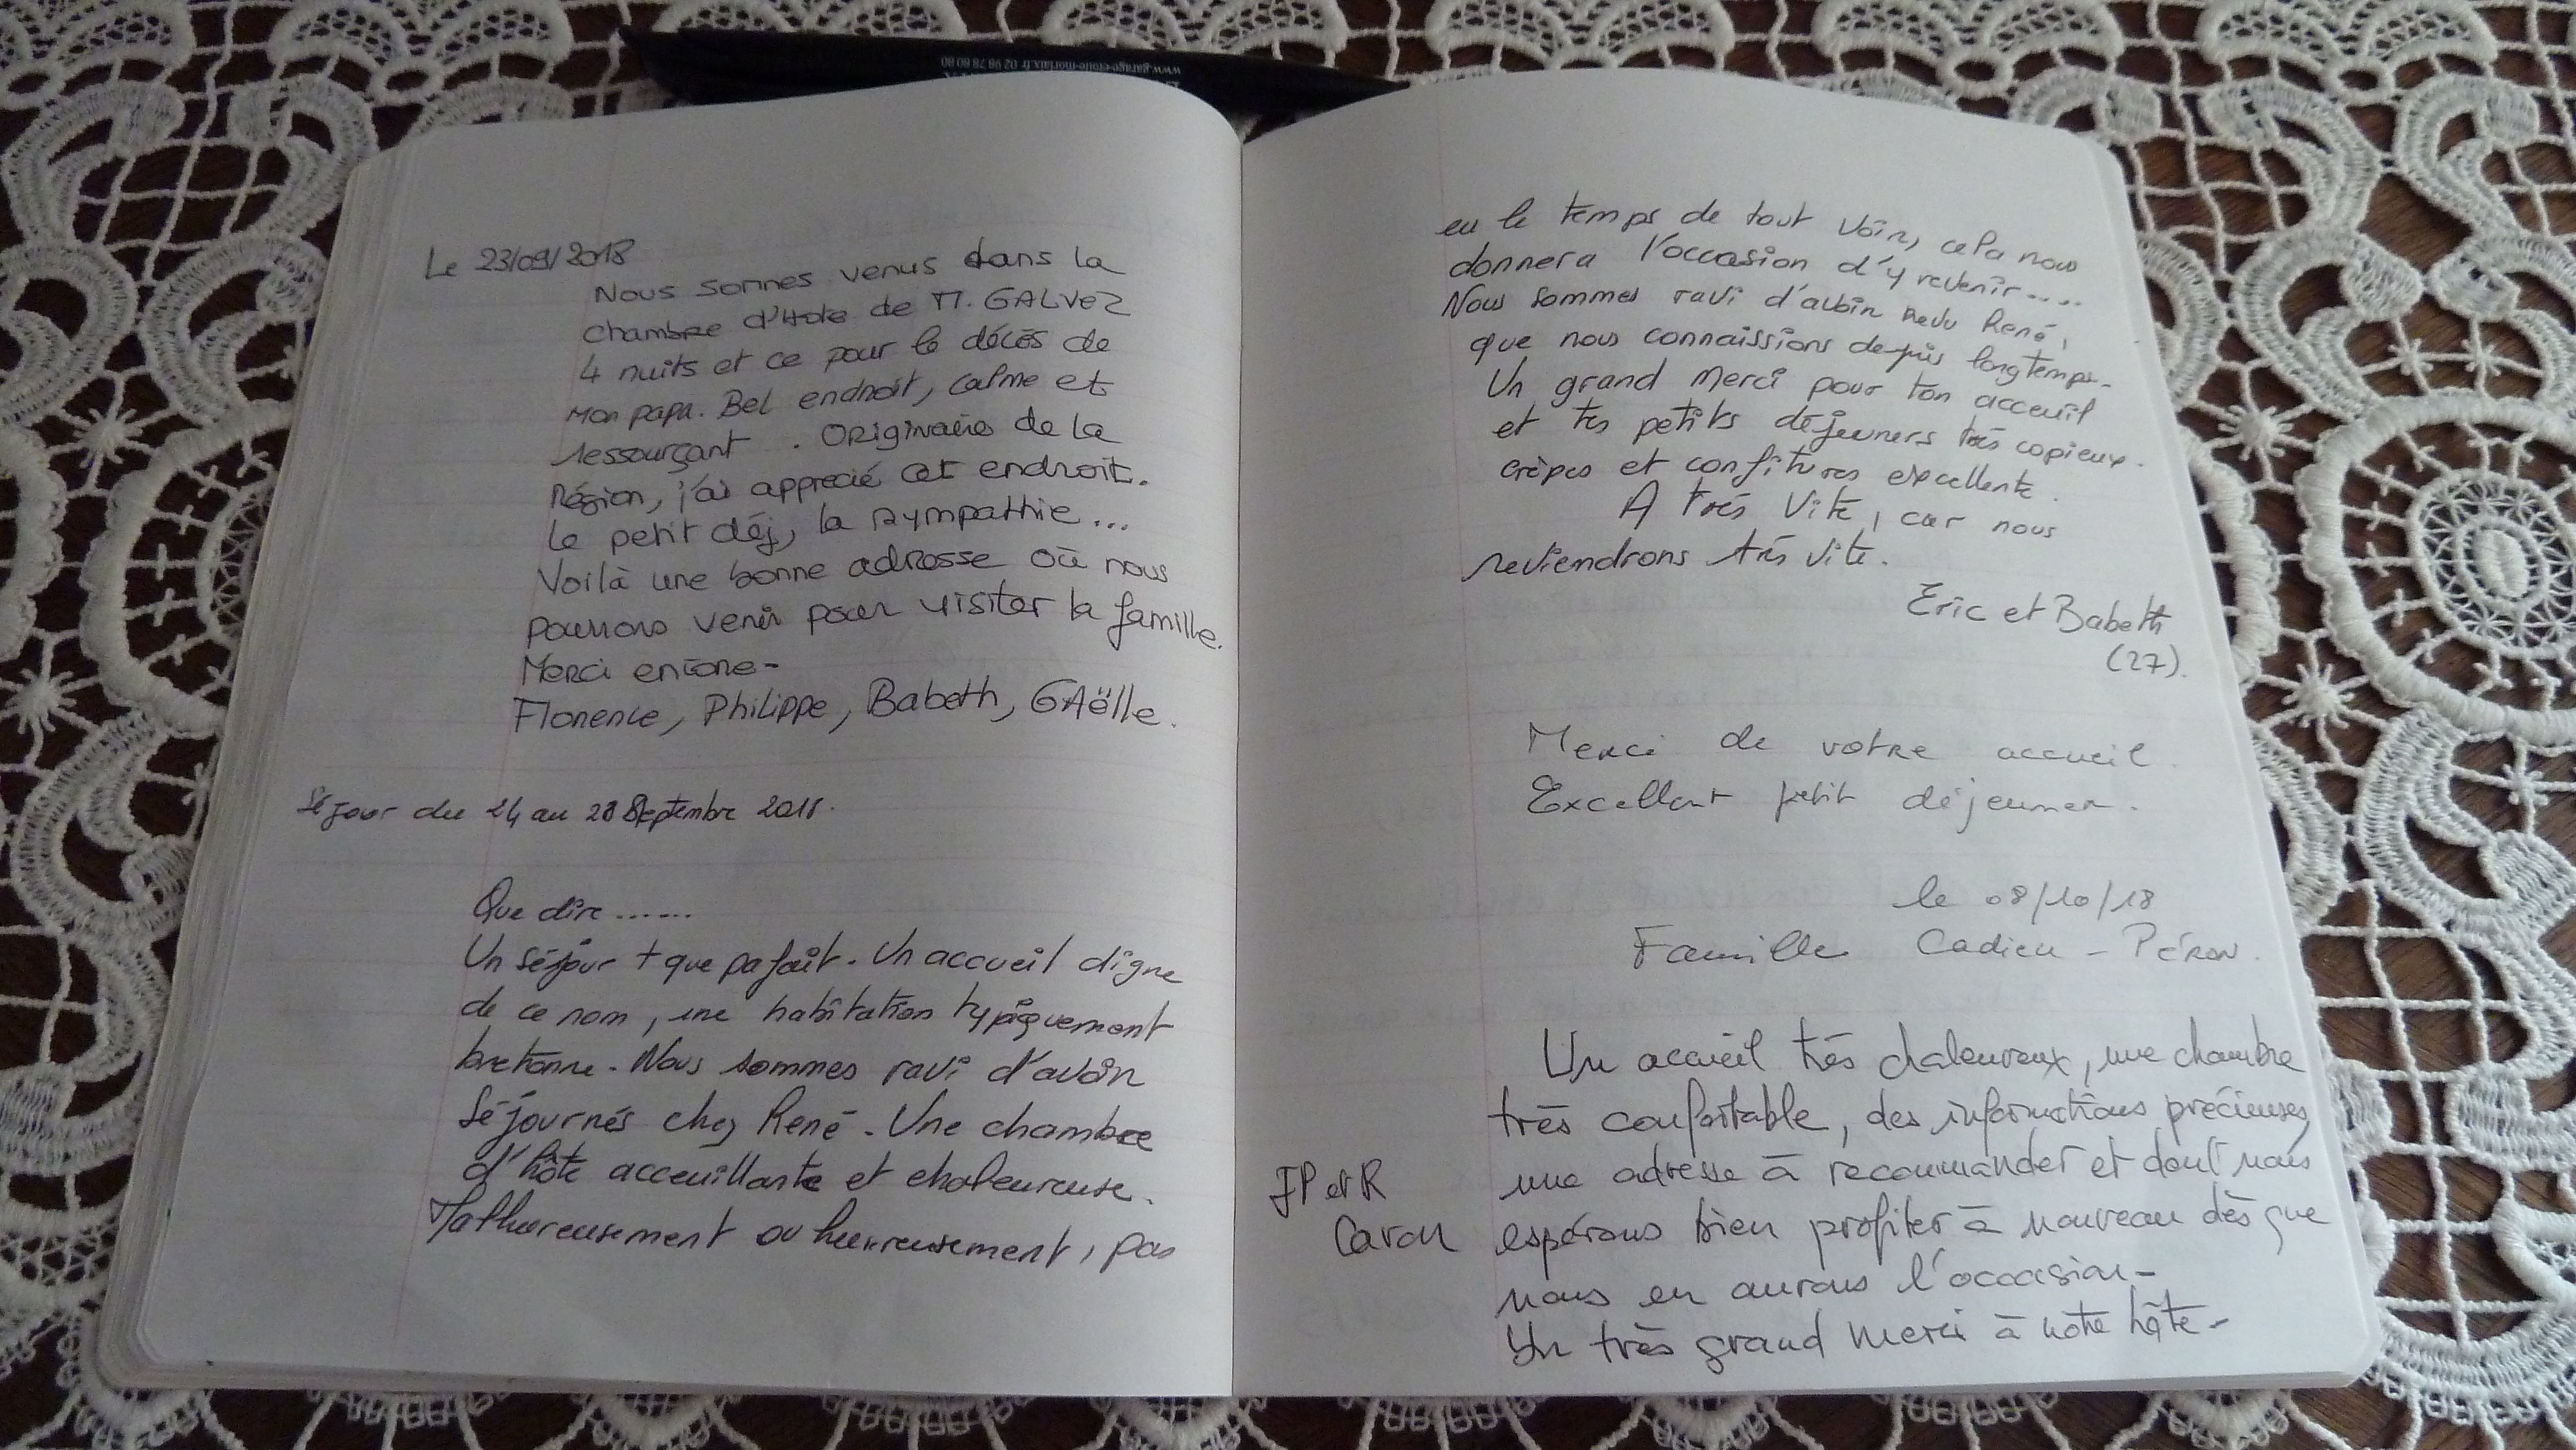 www.garage-etoile-morlaix.fr 02 98 78 80 80
Le 23/09/2018
Nous sommes venus dans la
chambre d'Hote de M. GALVEZ
4 nuits et ce pour le décès de
mon papa. Bel endroit, calme et
ressourçant . Originaire de la
Région, j'ai apprecié cet endroit.
Le petit déj, la sympathie...
Voilà une bonne adresse où nous
pourrons venir pour visiter la famille.
Merci encore-
Florence, Philippe, Babeth, GAëlle.
Séjour du 24 au 28 Septembre 2018.
Que dire ......
Un séjour + que pafait. Un accueil digne
de ce nom, une habitation typiquement
bretonne. Nous sommes ravi d'avoir
séjournés chez René. Une chambre
d'hôte acceuillante et chaleureuse.
Malhureusement ou heureusement, pas
eu le temps de tout voir, cela nous
donnera l'occasion d'y revenir....
Nous sommes ravi d'avoir revu René,
que nous connaissions depuis longtemps.
Un grand merci pour ton acceuil
et tes petits déjeuners très copieux.
crèpes et confitures excellente.
A très vite, car nous
reviendrons très vite.
Eric et Babeth
(27).
Merci de votre accueil.
Excellent petit déjeuner.
le 08/10/18
Famille Cadieu - Péron.
Un accueil très chaleureux, une chambre
très confortable, des informations précieuses,
une adresse à recommander et dont nous
espérons bien profiter à nouveau dès que
nous en aurons l'occasion-
Un très grand merci à notre hôte-
JP et R
Caron